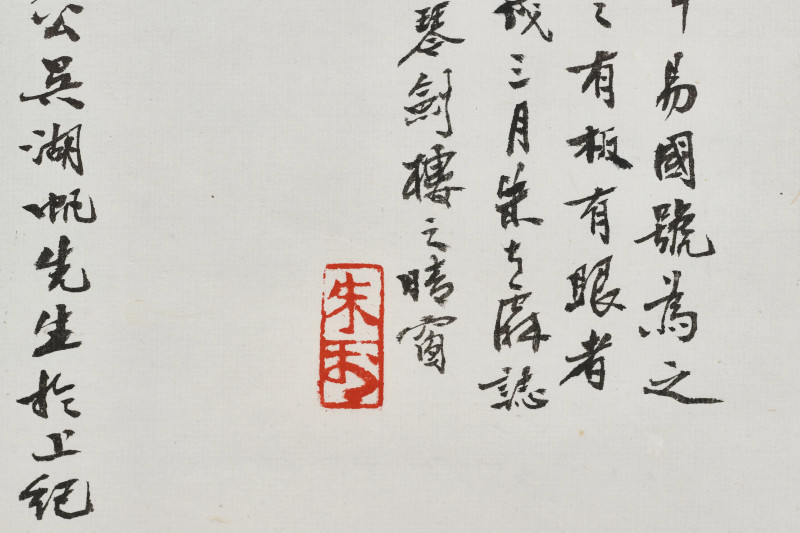 易國號為之
有板有眼者
三月朱誌
琴劍樓之晴窗
朱
公吳湖帆先生於上紀